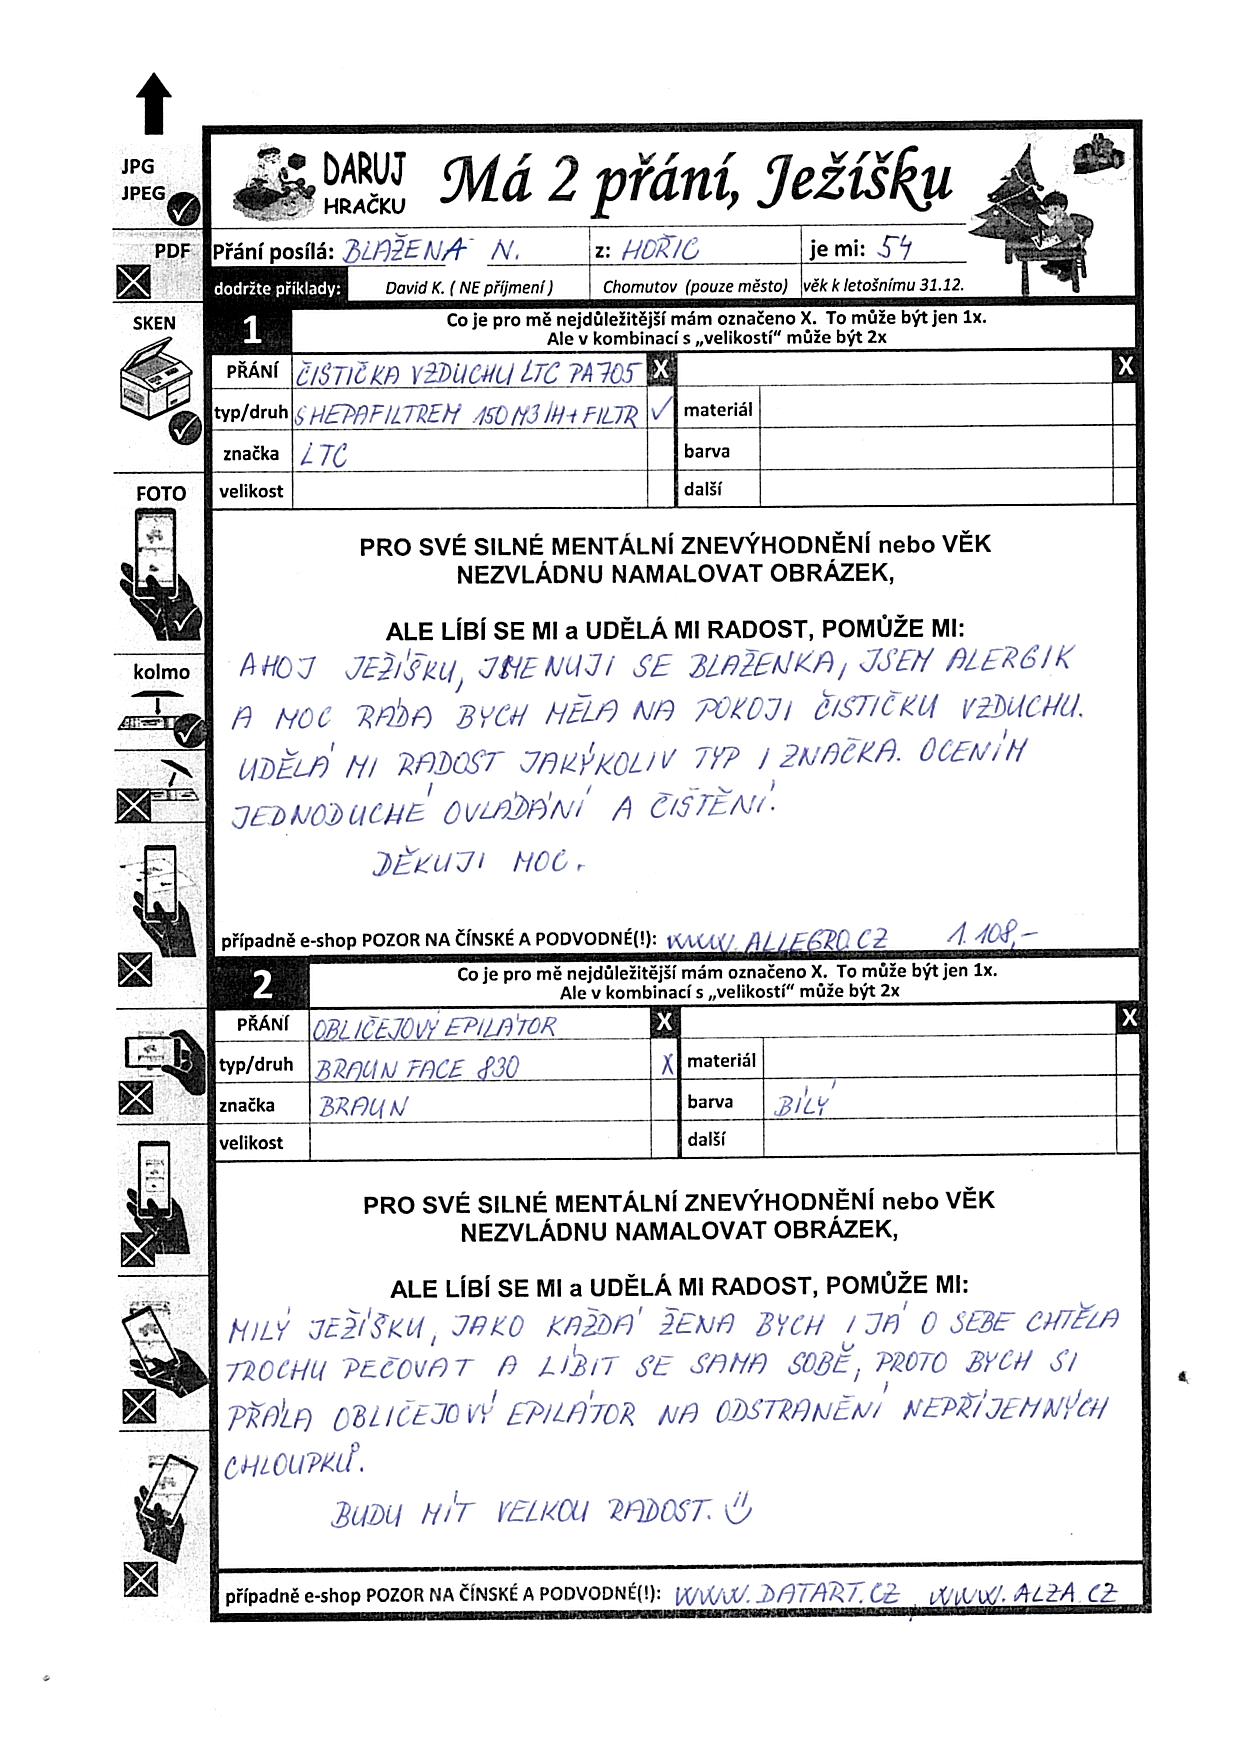 JPG
JPEG
PDF
SKEN
FOTO
kolmo
DARUJ
HRAČKU
Má 2 přání, Ježíšku
Přání posílá: BLAŽENA N. z: HOŘIC je mi: 54
dodržte příklady: David K. ( NE příjmení ) Chomutov (pouze město) věk k letošnímu 31.12.
1 Co je pro mě nejdůležitější mám označeno X. To může být jen 1x.
Ale v kombinací s „velikostí“ může být 2x
PŘÁNÍ ČISTIČKA VZDUCHU LTC PA705 X X
typ/druh S HEPAFILTREM 150 M3/H+FILTR ✓ materiál
značka LTC barva
velikost další
PRO SVÉ SILNÉ MENTÁLNÍ ZNEVÝHODNĚNÍ nebo VĚK
NEZVLÁDNU NAMALOVAT OBRÁZEK,
ALE LÍBÍ SE MI a UDĚLÁ MI RADOST, POMŮŽE MI:
AHOJ JEŽÍŠKU, JMENUJI SE BLAŽENKA, JSEM ALERGIK
A MOC RÁDA BYCH MĚLA NA POKOJI ČISTIČKU VZDUCHU.
UDĚLÁ MI RADOST JAKÝKOLIV TYP I ZNAČKA. OCENÍM
JEDNODUCHÉ OVLÁDÁNÍ A ČIŠTĚNÍ.
DĚKUJI MOC.
případně e-shop POZOR NA ČÍNSKÉ A PODVODNÉ(!): WWW.ALLEGRO.CZ 1.108,-
2 Co je pro mě nejdůležitější mám označeno X. To může být jen 1x.
Ale v kombinací s „velikostí“ může být 2x
PŘÁNÍ OBLIČEJOVÝ EPILÁTOR X X
typ/druh BRAUN FACE 830 X materiál
značka BRAUN barva BÍLÝ
velikost další
PRO SVÉ SILNÉ MENTÁLNÍ ZNEVÝHODNĚNÍ nebo VĚK
NEZVLÁDNU NAMALOVAT OBRÁZEK,
ALE LÍBÍ SE MI a UDĚLÁ MI RADOST, POMŮŽE MI:
MILÝ JEŽÍŠKU, JAKO KAŽDÁ ŽENA BYCH I JÁ O SEBE CHTĚLA
TROCHU PEČOVAT A LÍBIT SE SAMA SOBĚ, PROTO BYCH SI
PŘÁLA OBLIČEJOVÝ EPILÁTOR NA ODSTRANĚNÍ NEPŘÍJEMNÝCH
CHLOUPKŮ.
BUDU MÍT VELKOU RADOST.
případně e-shop POZOR NA ČÍNSKÉ A PODVODNÉ(!): WWW.DATART.CZ, WWW.ALZA.CZ